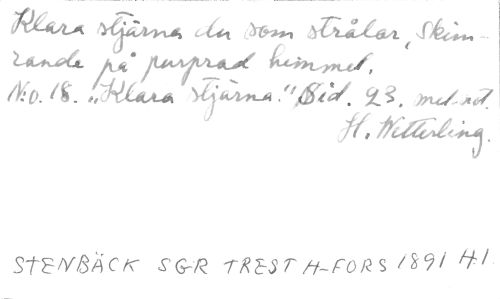 Klara stjärna du som strålar, skim-
rande på purprad himmel.
N:o. 18. "Klara stjärna." Sid. 23. mel. not.
H. Wetterling.
STENBÄCK SGR TREST H-FORS 1891 H.1